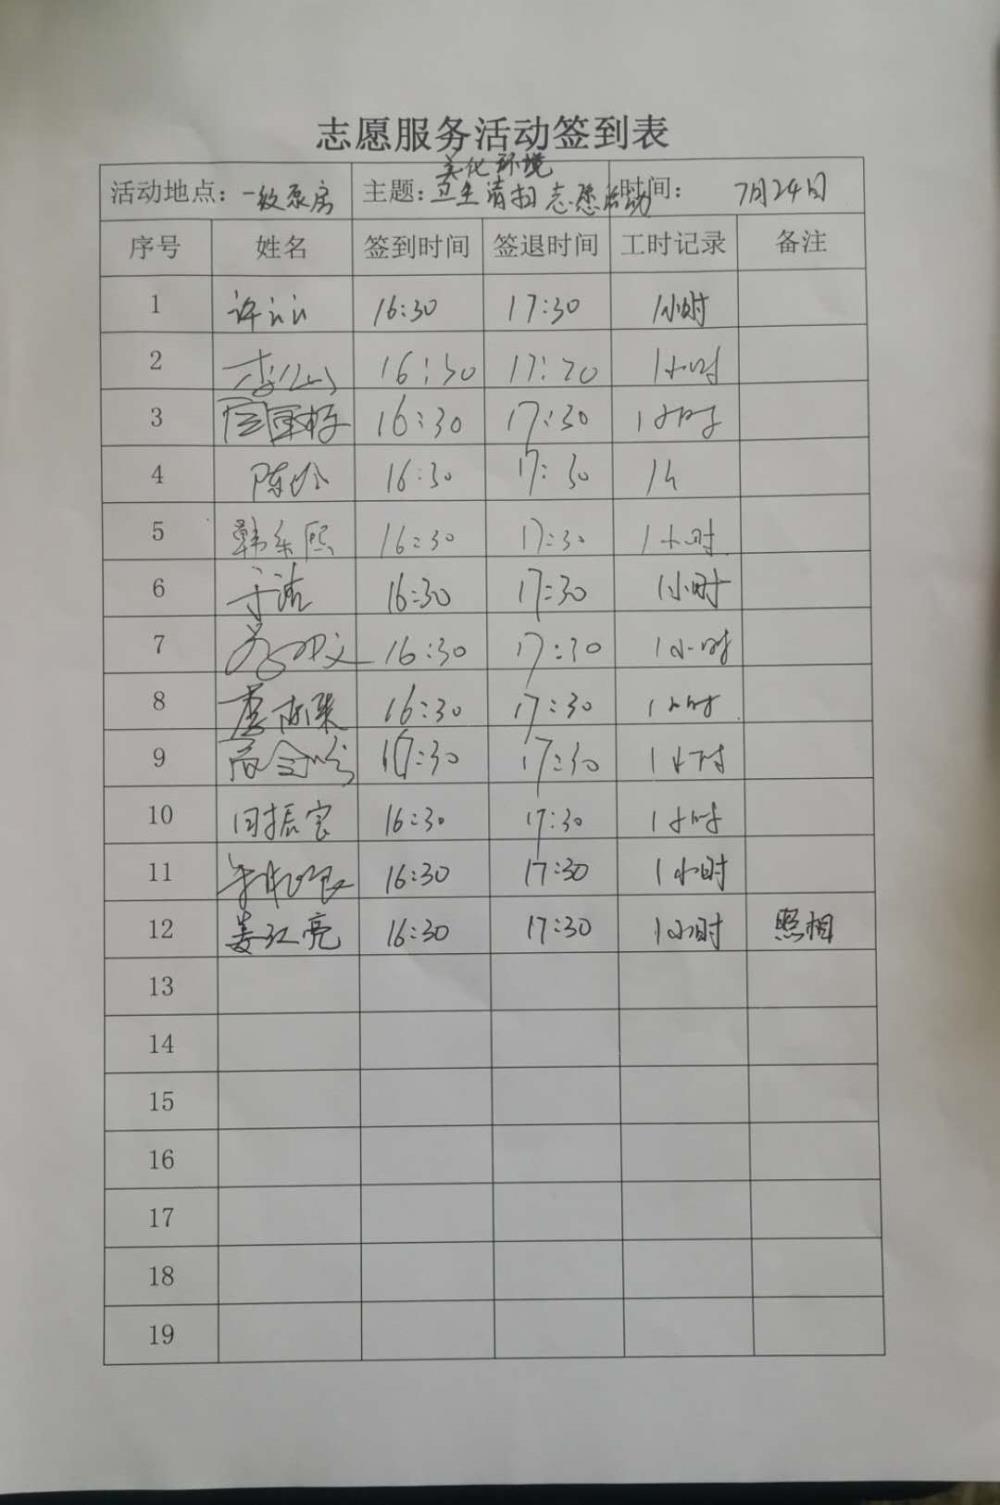 志愿服务活动签到表
美化环境
活动地点：一级泵房 主题：卫生清扫志愿活动 时间： 7月24日
序号 姓名 签到时间 签退时间 工时记录 备注
1 许 16:30 17:30 1小时
2 李 16:30 17:30 1小时
3 16:30 17:30 1小时
4 陈玲 16:30 17:30 1h
5 韩东熙 16:30 17:30 1小时
6 于洁 16:30 17:30 1小时
7 16:30 17:30 1小时
8 16:30 17:30 1小时
9 17:30 1小时
10 田振宝 16:30 17:30 1小时
11 16:30 17:30 1小时
12 姜江亮 16:30 17:30 1小时 照相
13
14
15
16
17
18
19